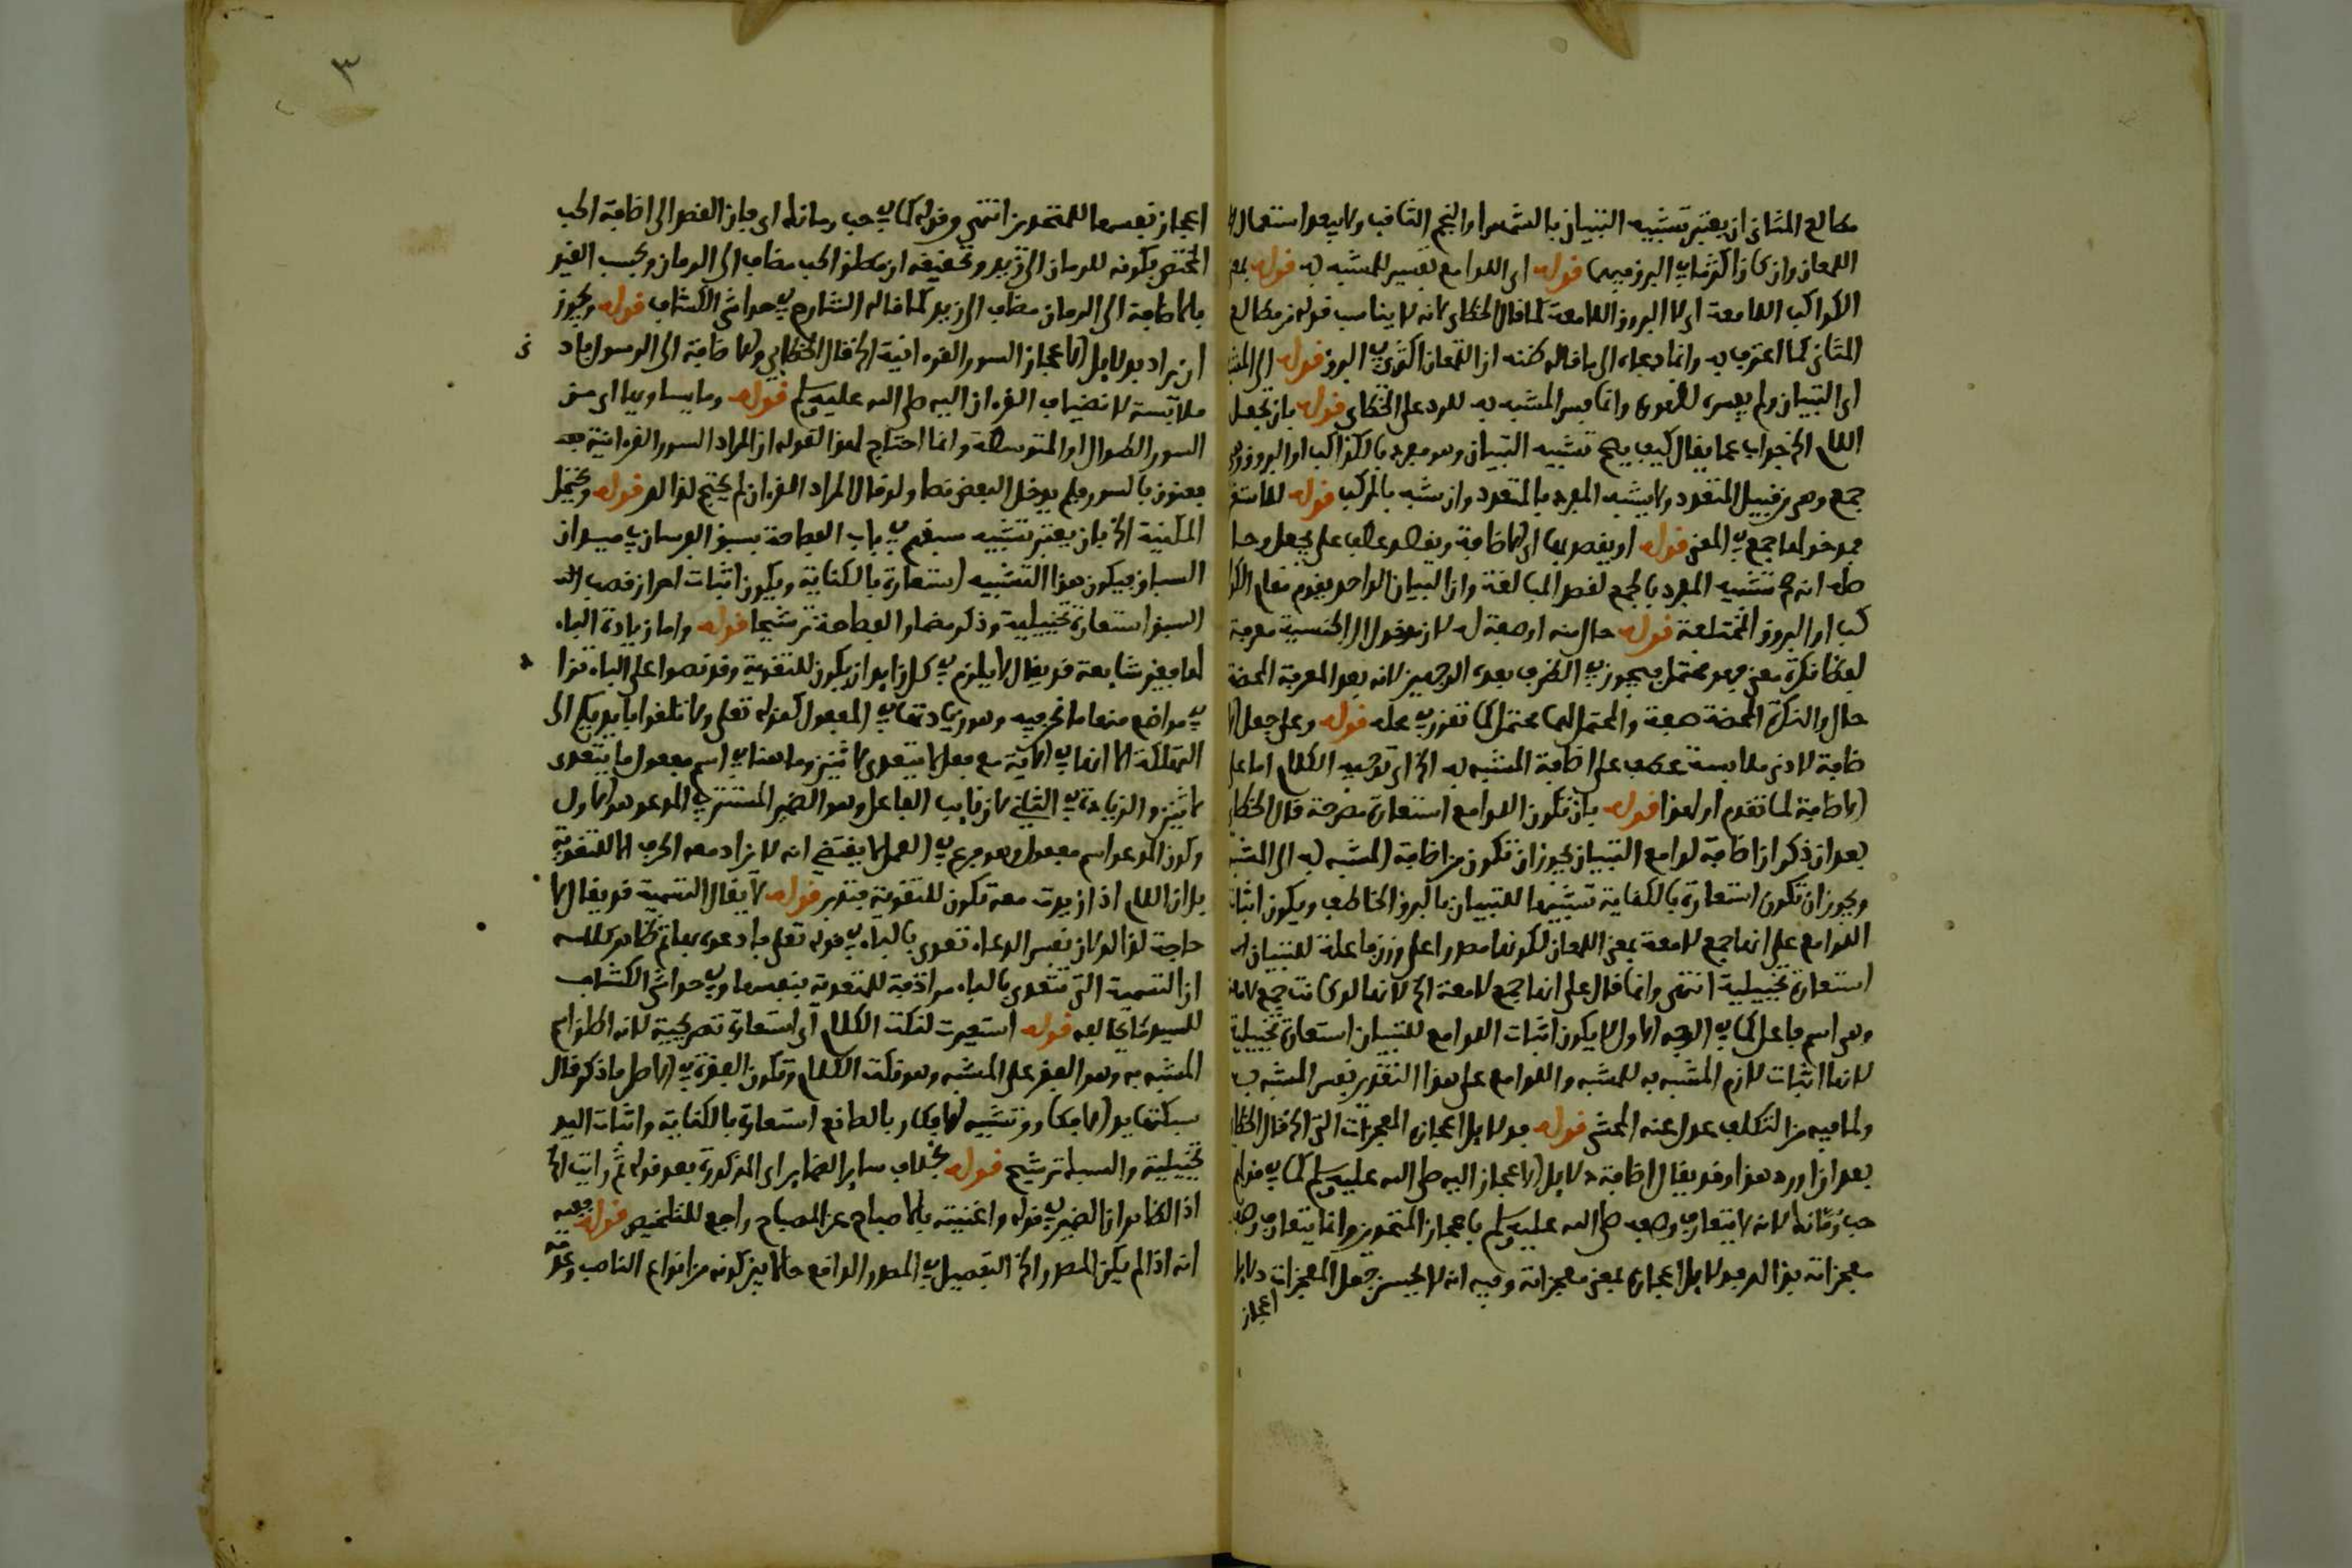 مطالع المثانى ان يعتبر تشبيه التبيان بالشمس او النجم الثاقب ولا يبعد استعمال
اللمعان وان كان اكثر فى البروق فيهما قوله اى اللوامع تفسير للمشبه به قوله
الكواكب اللامعة اى لا البروق اللامعة كما قال الخطاى لانه لا يناسب قوله من مطالع
المثانى كما اعترف به وانما دعاه الى ما قاله ظنه ان اللمعان اكثرى فى البروق قوله
اى التبيان ولم يفسره لظهوره وانما فسر المشبه به للرد على الخطاى قوله بان تجعل
اللام الخ جواب عما يقال كيف يصح تشبيه التبيان وهو مفرد بالكواكب او البروق وهى
جمع وهى من قبيل المتعدد ولا يشبه المفرد بالمتعدد وان شبه بالمركب قوله
فمدخولها جمع فى المعنى قوله او يقصد بها اى الاضافة ويقصد عطف على يجعل
انه تشبيه المفرد بالجمع لقصد المبالغة وان التبيان الواحد يقوم مقام
كب او البروق المختلفة قوله حال منه او صفة له لان مدخول ال الجنسية معرفة
لفظا نكرة معنى فهو محتمل فيجوز فى الظرف بعده الوجهين لانه بعد المعرفة المحضة
حال والنكرة المحضة صفة والمحتمل لهما محتمل كما تقرر فى محله قوله وعلى جعل
ضافة لادنى ملابسة عطف على اضافة المشبه به الخ اى توجيه الكلام اما على
الاضافة لما تقدم او لهذا قوله بان تكون اللوامع استعارة مصرحة قال
بعد ان ذكر ان اضافة لوامع التبيان يجوز ان تكون من اضافة المشبه به الى
ويجوز ان تكون استعارة بالكناية تشبيها للتبيان بالبرق الخاطف ويكون
اللوامع على انها جمع لامعة بمعنى اللمعان لكونها مصدرا على وزن فاعلة للتبيان
استعارة تخييلية انتهى وانما قال على انها جمع لامعة الخ لانها لو كانت جمع
وهى اسم فاعل كما فى الوجه الاول لا يكون اثبات اللوامع للتبيان استعارة تخييلية
لانها اثبات لازم المشبه به للمشبه واللوامع على هذا التقدير نفس المشبه به
ولما فيه من التكلف عدل عنه المحشى قوله بدلايل اعجازه المعجزات التى الخ قال
بعد ان اورد هذا وقد يقال اضافة دلايل الاعجاز اليه صلى الله عليه وسلم كما فى قولهم
حب رمانه لانه لا يتعارف وصفه صلى الله عليه وسلم باعجاز المتحدين وانما يتعارف
معجزاته بذالك فدلايل اعجازه بمعنى معجزاته وفيه انه لا يحسن جعل المعجزات دلايل
اعجاز
٣
اعجاز نفسها للمتحدين انتهى وقوله كما فى حب رمانه اى فان القصد الى اضافة الحب
المختص بكونه للرمان الى زيد وتحقيقه ان مطلق الحب مضاف الى الرمان وبحسب القيد
بالاضافة الى الرمان مضاف الى زيد كما قاله الشارح فى حواشى الكشاف قوله ويجوز
ان يراد بدلايل الاعجاز السور القرءانية الخ قال الخطاى والاضافة الى الرسول
ملابسة لا نضياف القرءان اليه صلى الله عليه وسلم قوله وما يساويها اى من
السور الطوال او المتوسطة وانما احتاج لهذا لقوله ان المراد السور القرءانية
معنون بالسور فلم يدخل البعض ولو قال المراد القرءان لم يحتج لذالك قوله ويحتمل
المكنية الخ بان يعتبر تشبيه سبقهم فى باب الفصاحة بسبق الفرسان فى ميدان
السباق فيكون هذا التشبيه استعارة بالكناية ويكون اثبات احراز قصب
السبق استعارة تخييلية وذكر مضمار الفصاحة ترشيحا قوله واما زيادة الباء
لها فغير شايعة قد يقال لا يلزم فى كل زايد ان يكون للتقوية وقد نصوا على الباء تزاد
فى مواضع منها ما نحن فيه وهو زيادتها فى المفعول كقوله تعلى ولا تلقوا بايديكم الى
التهلكة الا انها فى الاية مع فعل لا يتعدى لاثنين وما هنا فى اسم مفعول ما يتعدى
لاثنين والزيادة فى الثانى لان نايب الفاعل وهو الضمير المستتر فى المدعو هو الاول
وكون المدعو اسم مفعول وهو فرع فى العمل لا يقتضى انه لا يزاد معه الحرف الا للتقوية
بل ان اللام اذا زيدت معه تكون للتقوية فتدبر قوله لا يقال التسمية قد يقال لا
حاجة لذالك لان نفس الدعاء تعدى بالباء فى قوله تعلى فادعوه بها ثم ظاهر كلامه
ان التسمية التى تتعدى بالباء مرادفة للمتعدية بنفسها وفى حواشى الكشاف
للسيد ما يخالفه قوله استعيرت لنكت الكلام اى استعارة تصريحية لانه اطلق اسم
المشبه به وهو الفقر على المشبه وهو نكت الكلام وتكون الفقرة فى الاصل ما ذكر قال
سبكتها يد الافكار وتشبيه الافكار بالصانع استعارة بالكناية واثبات اليد
تخييلية والسبك ترشيح قوله بخلاف ساير الضماير اى المذكورة بعد قوله ثم رايت الخ
اذ الظاهر ان الضمير فى قوله واغنيته بالاصباح عن المصباح راجع للتلخيص قوله ففيه
انه اذا لم يكن المصدر الخ التفصيل فى المصدر الواقع حالا بين كونه من انواع الناصب